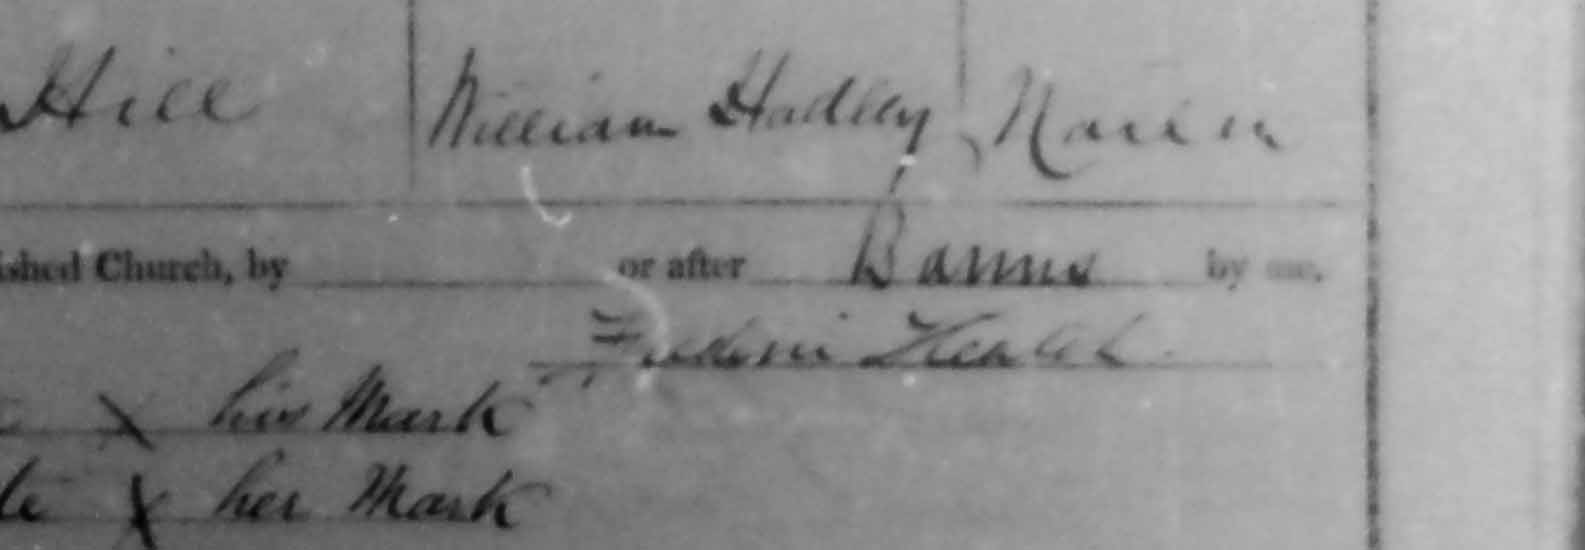 Hill William Hadley Nailer
ished Church, by or after Banns by me,
Frederic
X his Mark
te X her Mark